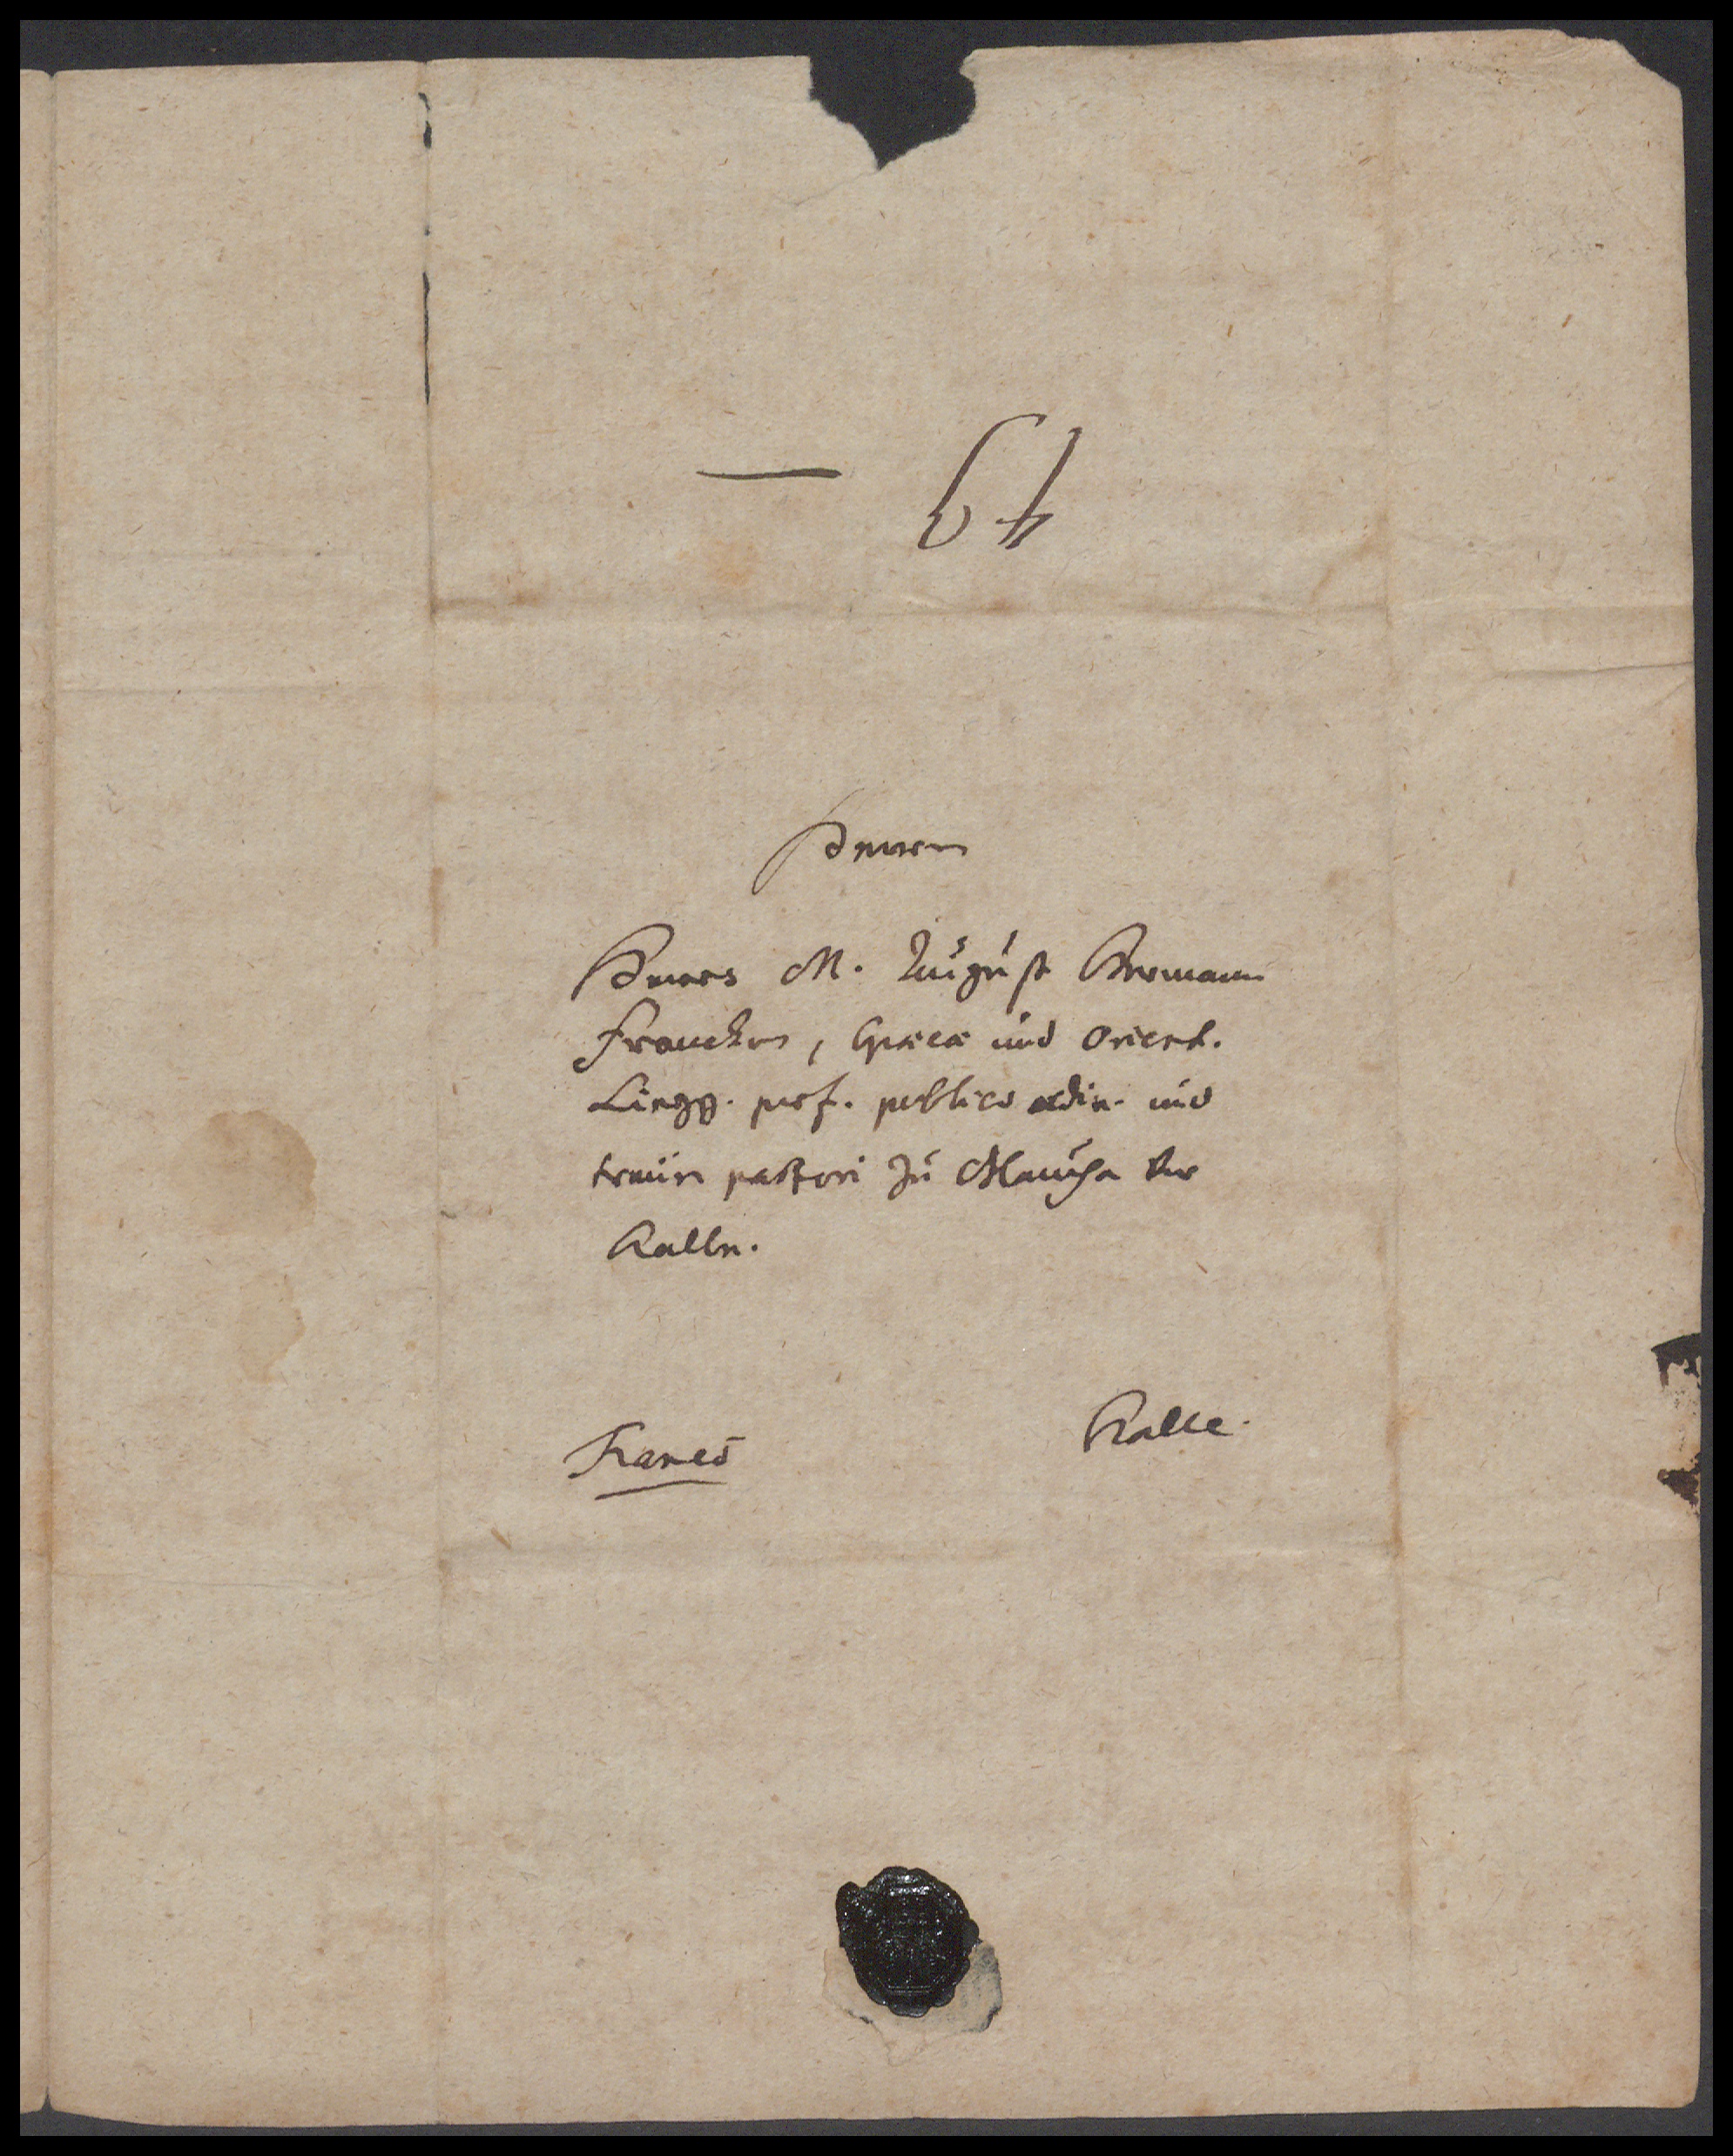 Herren
Herrn M. August Herman
Francken, Graecae und Orient.
Lingg. prof. publico ordin. und
treuen pastori zu Glaucha vor
Halle.
Halle.
Franco